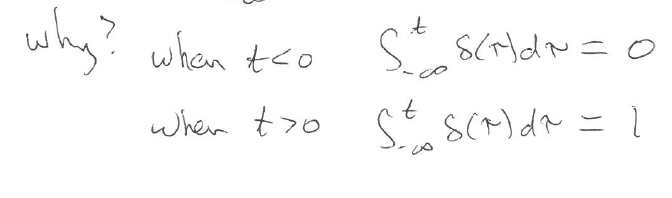 why? when t<0 ∫_{-∞}^{t} δ(τ)dτ = 0
when t>0 ∫_{-∞}^{t} δ(τ)dτ = 1